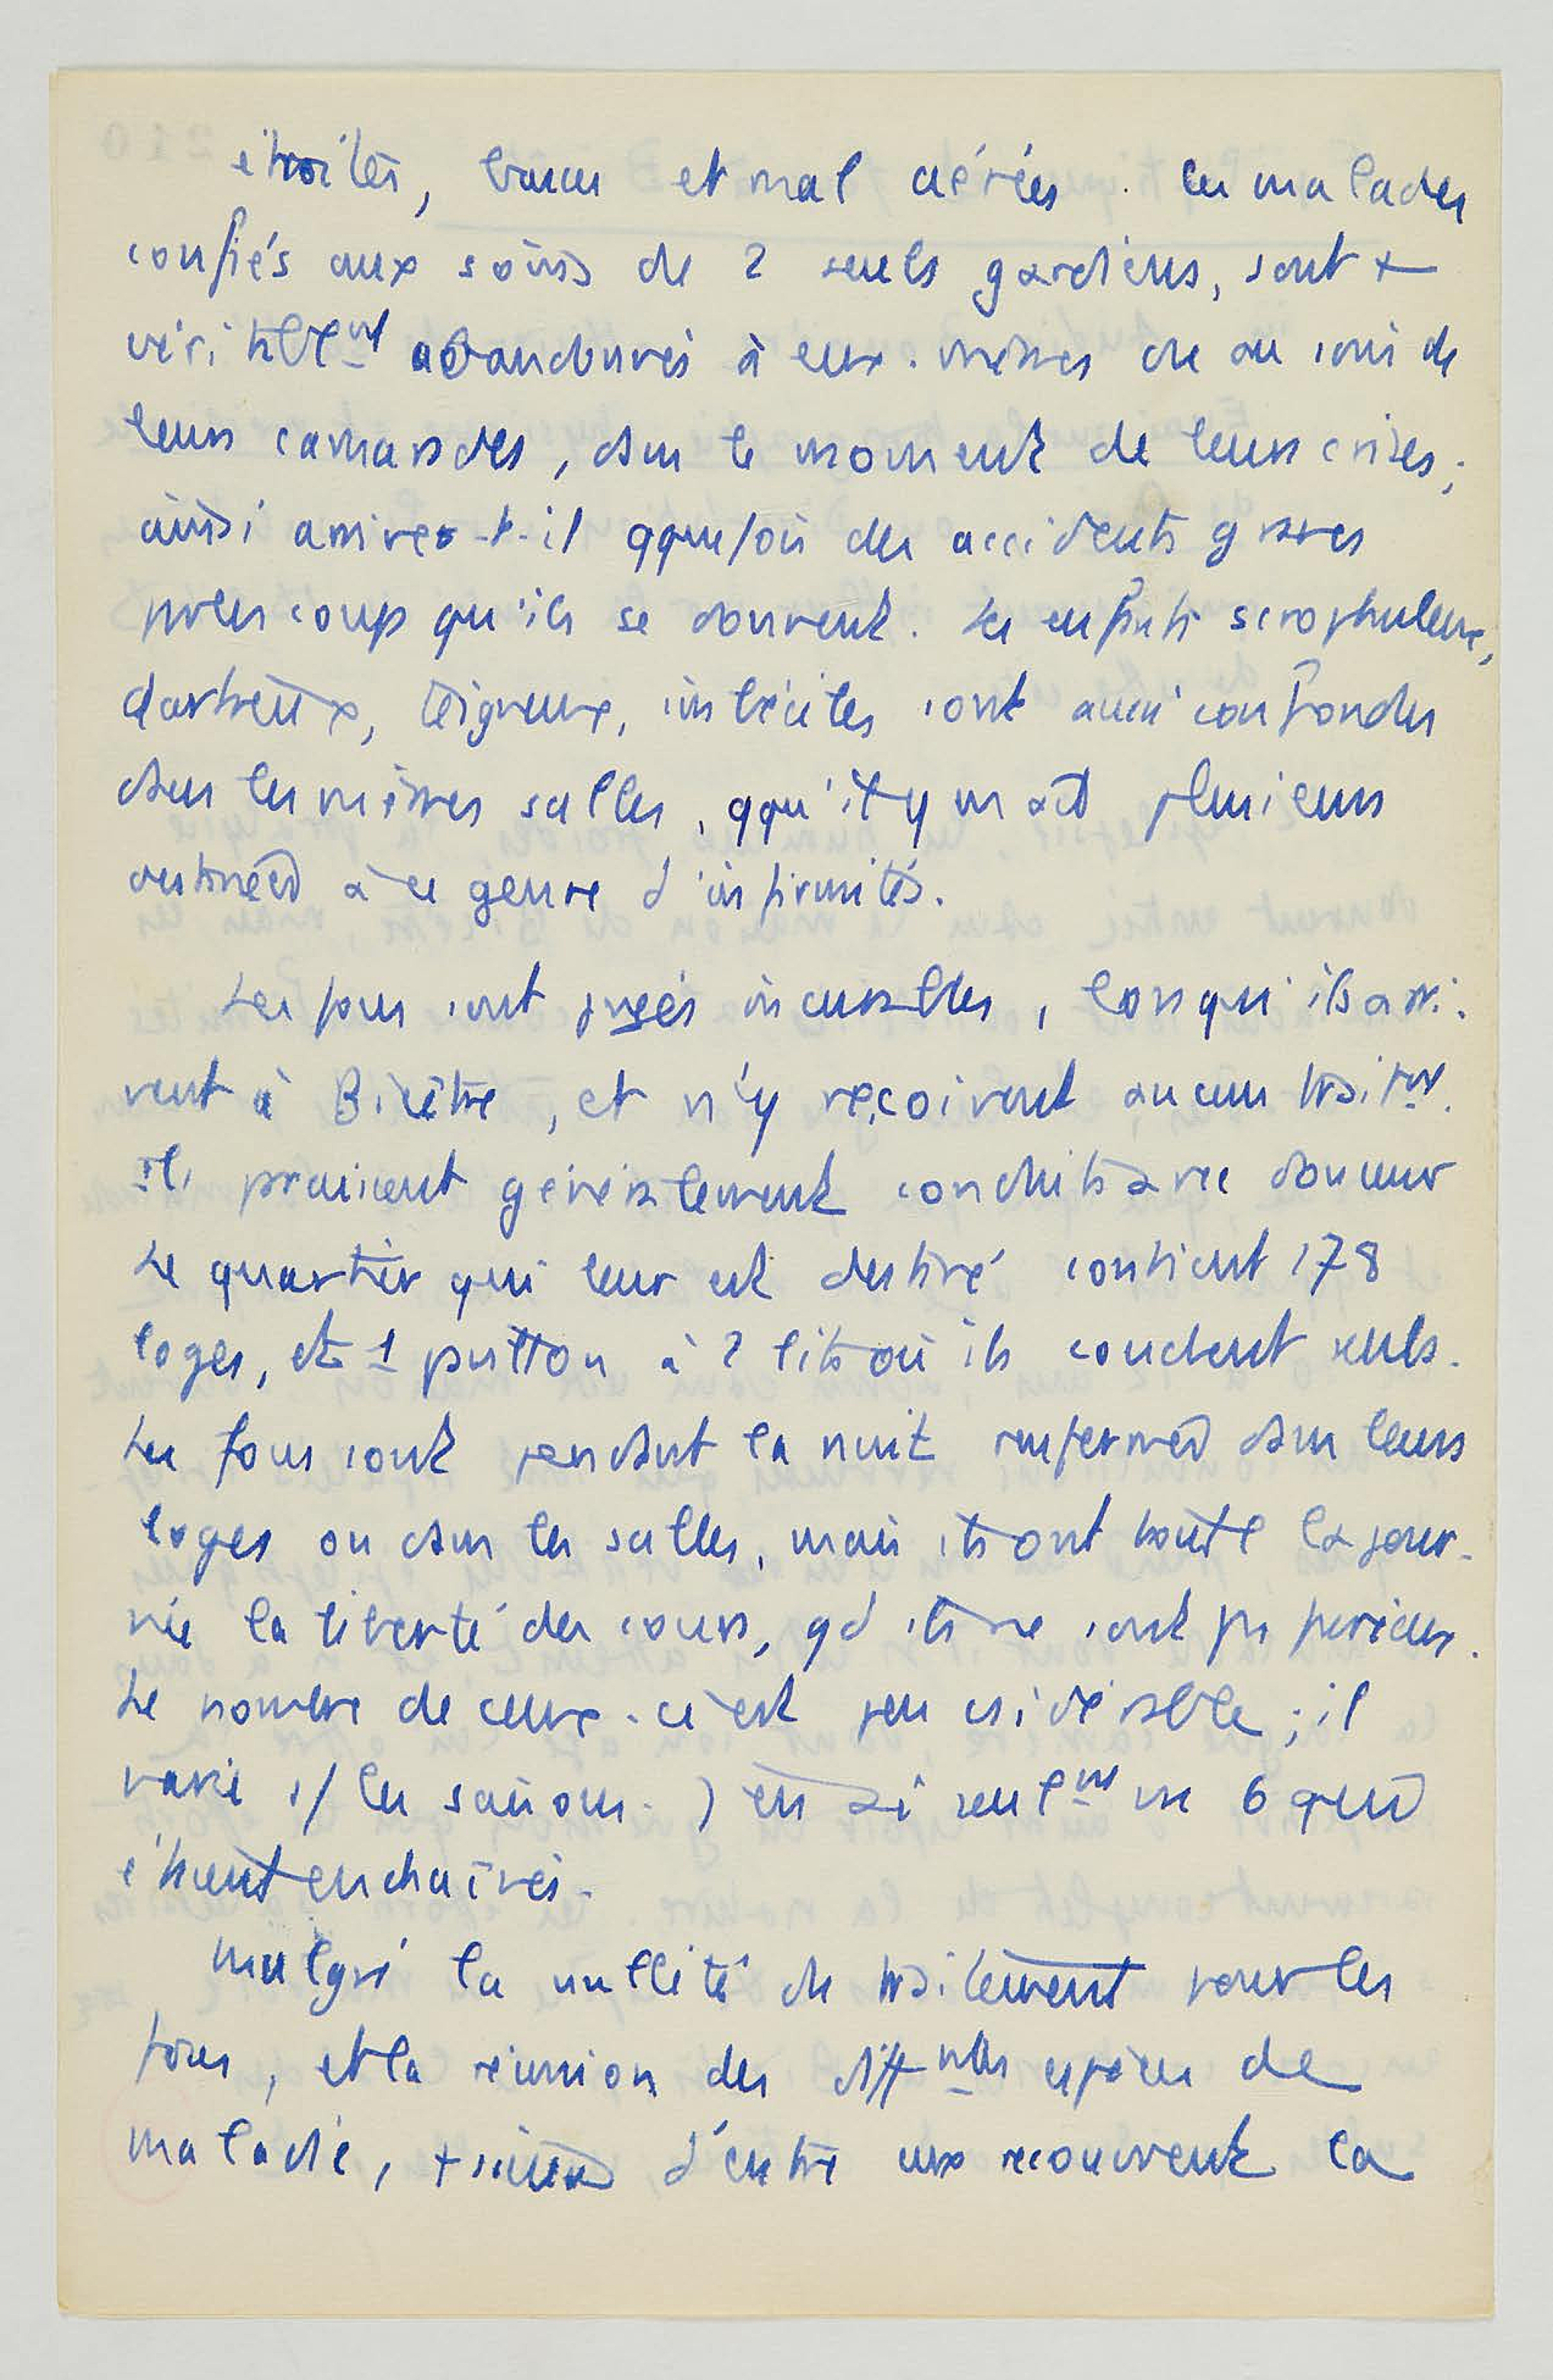 étroites, basses et mal aérées. Les malades
confiés aux soins de 2 seuls gardiens, sont +
véritablemt abandonnés à eux-mêmes ou au soin de
leurs camarades, dans le moment de leurs crises;
aussi arrive-t-il qquefois des accidents graves
par les coups qu'ils se donnent. Les enfants scrophuleux,
dartreux, teigneux, imbéciles sont aussi confondus
dans les mêmes salles, qqu'il y en ait plusieurs
destinées à ce genre d'infirmités.
Les fous sont jugés incurables, lorsqu'ils arri-
vent à Bicêtre, et n'y reçoivent aucun traitmt.
Ils paraissent généralement conduits avec douceur
Le quartier qui leur est destiné contient 178
loges, et 1 pavillon à 2 lits où ils couchent seuls.
Les fous sont pendant la nuit renfermés dans leurs
loges ou dans les salles, mais ils ont toute la jour-
née la liberté des cours, qd ils ne sont pas furieux.
Le nombre de ceux-ci est peu csidérable; il
varie s/ les saisons. J'en ai seulmt vu 6 qui
étaient enchaînés.
Malgré la nullité de traitement pour les
fous, et la réunion des diffntes espèces de
maladie, +sieurs d'entre eux recouvrent la